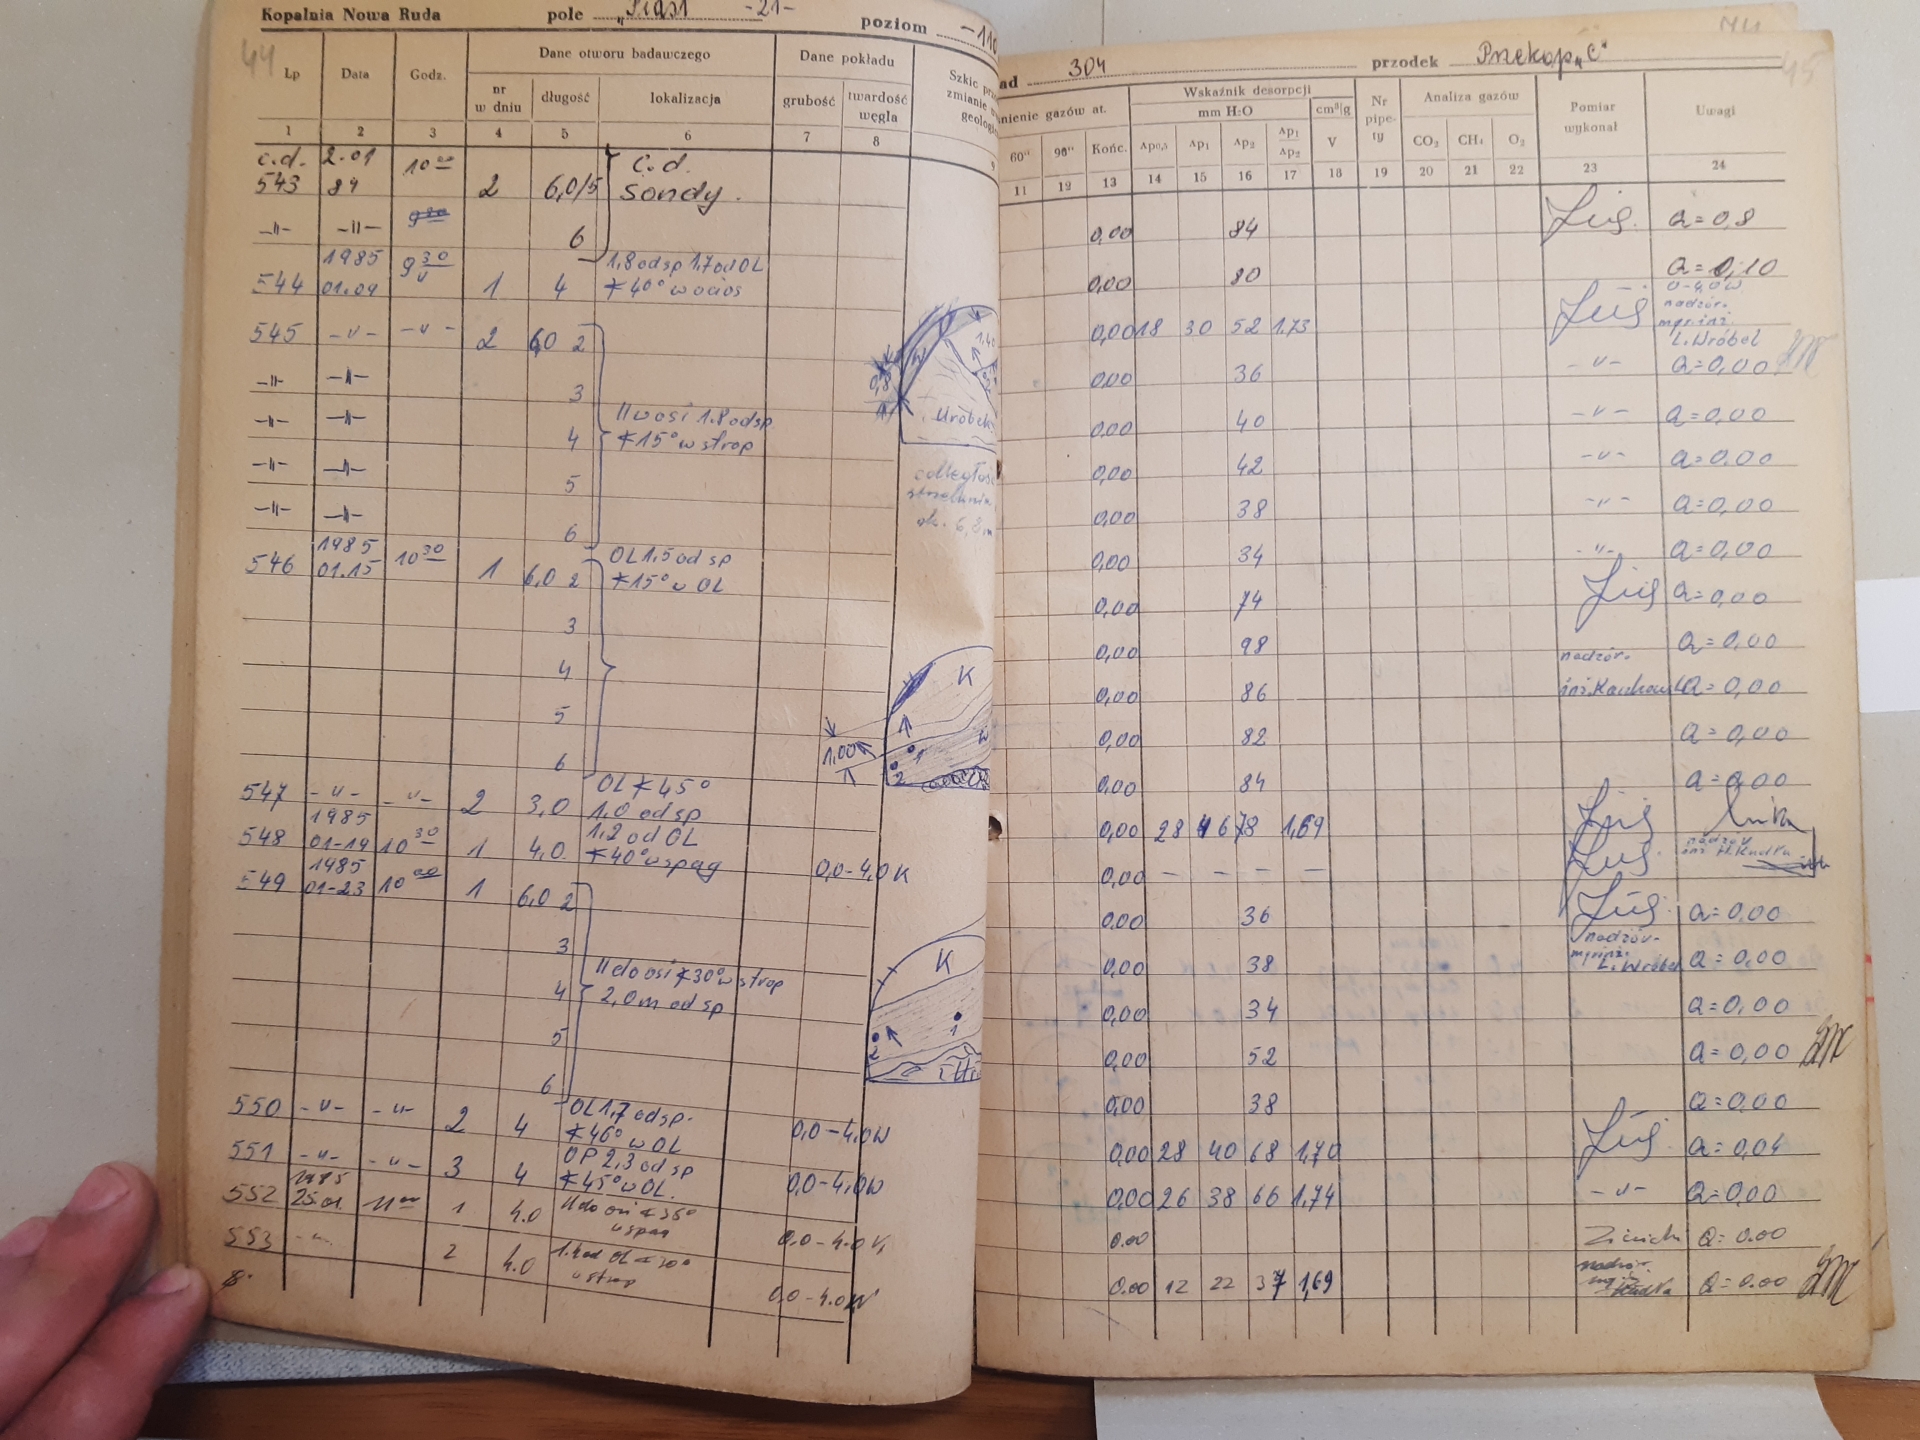 Kopalnia Nowa Ruda pole „Piast -21- poziom -110
44
Lp Data Godz. Dane otworu badawczego Dane pokładu
nr w dniu długość lokalizacja grubość twardość węgla
1 2 3 4 5 6 7 8 9
c.d. 2.01 10 00 c.d.
543 84 2 6,0/5 sondy.
-"- -"- 6
1985 9 30 1,8 od sp 1,7 od OL
544 01.09 1 4 ∢40° w ocios
545 -"- -"- 2 6,0 2
-"- -"- 3
-"- -"- 4 II w osi 1.8 od sp
∢15° w strop
-"- -"- 5
-"- -"- 6
1985 10 30 OL 1,5 od sp
546 01.15 1 6,0 2 ∢15° w OL
3
4
5
6
547 -"- -"- 2 3,0 OL ∢45°
1,0 od sp
1985 1,2 od OL
548 01-19 10 30 1 4,0 ∢40° w spąg 0,0-4,0 K
1985
549 01-23 10 00 1 6,0 2
3
4 II do osi ∢30° w strop
2,0 m od sp
5
6
550 -"- -"- 2 4 OL 1,7 od sp.
∢46° w OL 0,0-4,0 W
551 -"- -"- 3 4 OP 2,3 od sp
∢45° w OL. 0,0-4,0 W
1985
552 25.01 11 00 1 4.0 II do osi ∢35°
w spąg 0.0-4.0
553 -"- 2 4.0 1.4 od OL ∢20°
w strop 0.0-4.0 W
1,40
0,8
W
Uróbek
odległość
ok. 6,8 m
K
1,00
1
2
K
1
2
304 przodek Przekop „C"
45
Wskaźnik desorpcji Analiza gazów Pomiar wykonał Uwagi
mm H₂O cm³/g Nr pipety
60" 90" Końc. Δp0,5 Δp1 Δp2 Δp1/Δp2 V CO₂ CH₄ O₂
11 12 13 14 15 16 17 18 19 20 21 22 23 24
0,00 84 a=0,8
0,00 80 a=0,10
0-4,0 W
nadzór.
mgr inż.
Ł. Wróbel
0,00 18 30 52 1,73
0,00 36 -"- a=0,00
0,00 40 -"- a=0,00
0,00 42 -"- a=0,00
0,00 38 -"- a=0,00
0,00 34 -"- a=0,00
0,00 74 a=0,00
0,00 98 a=0,00
nadzór.
0,00 86 a=0,00
0,00 82 a=0,00
0,00 84 a=0,00
0,00 28 46 78 1,69
nadzór
0,00 - - - -
0,00 36 a=0,00
nadzór.
mgr inż.
Ł. Wróbel
0,00 38 a=0,00
0,00 34 a=0,00
0,00 52 a=0,00
0,00 38 a=0,00
0,00 28 40 68 1,70 a=0,04
0,00 26 38 66 1,74 -"- a=0,00
0.00 a=0.00
nadzór.
0.00 12 22 37 1,69 a=0.00